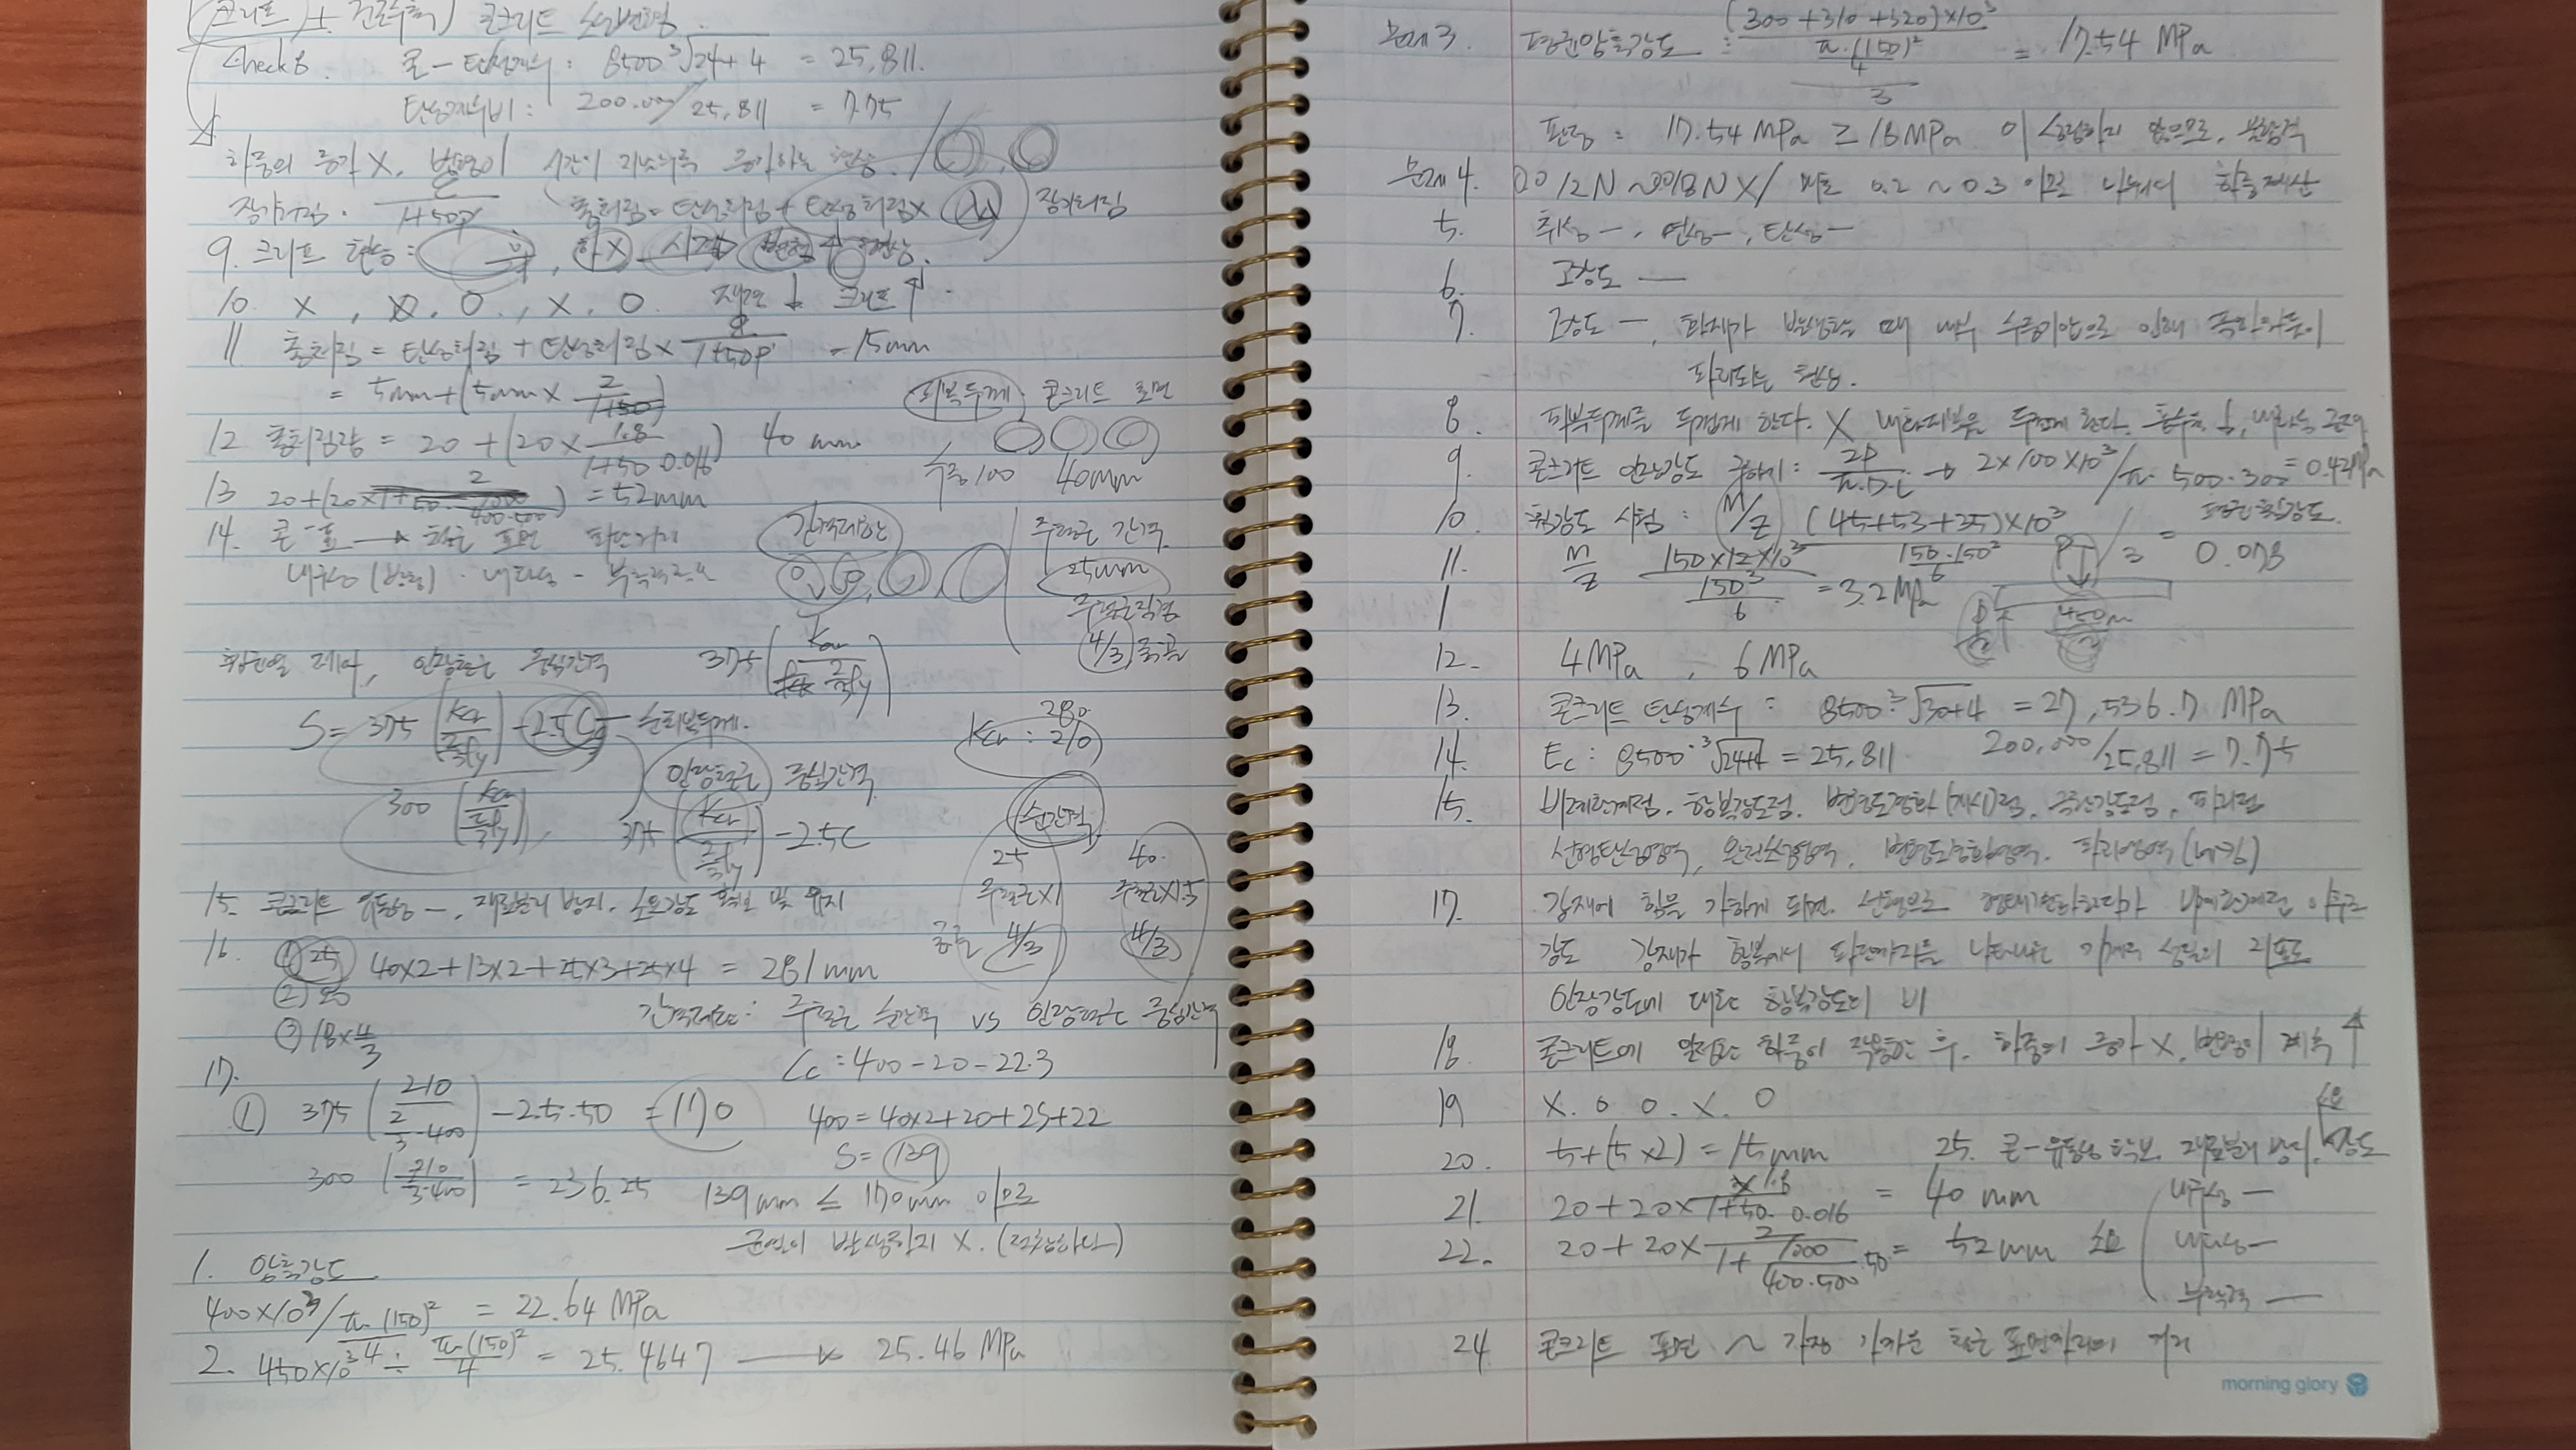 (크리프) + 건조수축) 콘크리트
Check 8. 콘-탄성계수 : 8500³√24+4 = 25,811.
탄성계수비 : 200.000/25,811 = 7.75
하중의 증가 X, 변형이 시간이 지날수록 증가하는 현상.
장기처짐. ξ/1+50ρ' 총처짐=탄성처짐+탄성처짐× 장기처짐
9. 크리프 현상 : 후, 하X 시간 변형↑ 현상.
10. X, X, O, X, O. 재령↓ 크리프↑.
11 총처짐 = 탄성처짐 + 탄성처짐 × ξ/1+50ρ' = 15mm
= 5mm+(5mm× 2/1+50)
피복두께, 콘크리트 표면
12 총처짐량 = 20 + (20× 1.8/1+50 0.016) 40 mm
수중100 40mm
13 20+(20× 2/1+50· 1000/400·500) = 52mm
14. 콘-표 → 철근 표면
내구성 (부착) · 내화성 - 부착력
간격제한
주철근 간격
25mm
주철근직경
4/3, 굵골
휨균열 제어, 인장철근 중심간격 375(Kcr/fs 2/3fy)
S= 375(Kcr/2/3fy) -2.5Cc 순피복두께.
Kcr : 280 210
300(Kcr/2/3fy),
인장철근 중심간격
375(Kcr/2/3fy) -2.5C
순간격
25 40.
주철근×1 주철근×1.5
굵골 4/3 4/3
15. 콘크리트 유동성 -, 재료분리 방지, 소요강도 확보 및 유지
16. ①25 40×2+13×2+25×3+25×4 = 281mm
②20
③18×4/3
간격제한 : 주철근 순간격 vs 인장철근 중심간격
Cc = 400-20-22.3
17.
① 375(210/2/3·400) -2.5·50 = 170
400 = 40×2+20+2S+22
S= 139
300(210/2/3·400) = 236.25 139mm ≤ 170mm 이므로
균열이 발생하지 X. (적합하다)
1. 압축강도
400×10³/π·(150)²/4 = 22.64 MPa
2. 450×10³ ÷ π·(150)²/4 = 25.4647 → 25.46 MPa
문제3. 평균압축강도 : (300+310+320)×10³/π·(150)²/4 /3 = 17.54 MPa
판정 : 17.54 MPa ≥ 18MPa 이 성립하지 않으므로, 불합격
문제4. 0.012N ~ 0.018N X/ 매초 0.2 ~ 0.3
5. 취성-, 연성-, 탄성-
6. 고강도 —
7. 고강도 -, 화재가 발생했을 때 내부 수증기압으로 인해 폭발하듯이
파괴되는 현상.
8. 피복두께를 두껍게 한다. X 내화피복을 두껍게 한다. 흡수율↓, 내화성 골재
9. 콘크리트 인장강도 구하기 : 2P/π·D·l → 2×100×10³/π·500·300 = 0.42MPa
10. 휨강도 시험 : M/Z (45+53+35)×10³/150·150²/6 / 3 = 평균휨강도. 0.078
11. M/Z 150×12×10³/150³/6 = 3.2MPa
P
P/2 450m/2
1
12. 4MPa, 6MPa
13. 콘크리트 탄성계수 : 8500·³√30+4 = 27,536.7 MPa
14. Ec : 8500·³√24+4 = 25,811 200,000/25,811 = 7.75
15. 비례한계점, 항복강도점, 변형도경화(개시)점, 극한강도점, 파괴점
선형탄성영역, 완전소성영역, 변형도경화영역, 파괴영역 (네킹)
17. 강재에 힘을 가하게 되면, 선형으로 형태변화하다가 비례한계점 이후로
강도 강재가 항복에서 파단까리를 나타내는 기계적 성질의 지표로
인장강도에 대한 항복강도의 비
18. 콘크리트에 일정한 하중이 작용한 후, 하중의 증가 X, 변형이 계속 ↑
19 X. O O. X. O
20. 5+(5×2) = 15mm 25. 콘-유동성 확보, 재료분리 방지, 소요 강도
21. 20+20× 1.8/1+50·0.016 = 40mm 내구성 —
22. 20+20× 2/1+ 1000/400·500 ·50 = 52mm 소요 내화성 —
부착력 —
24 콘크리트 표면 ~ 가장 가까운 철근 표면까지의 거리
morning glory